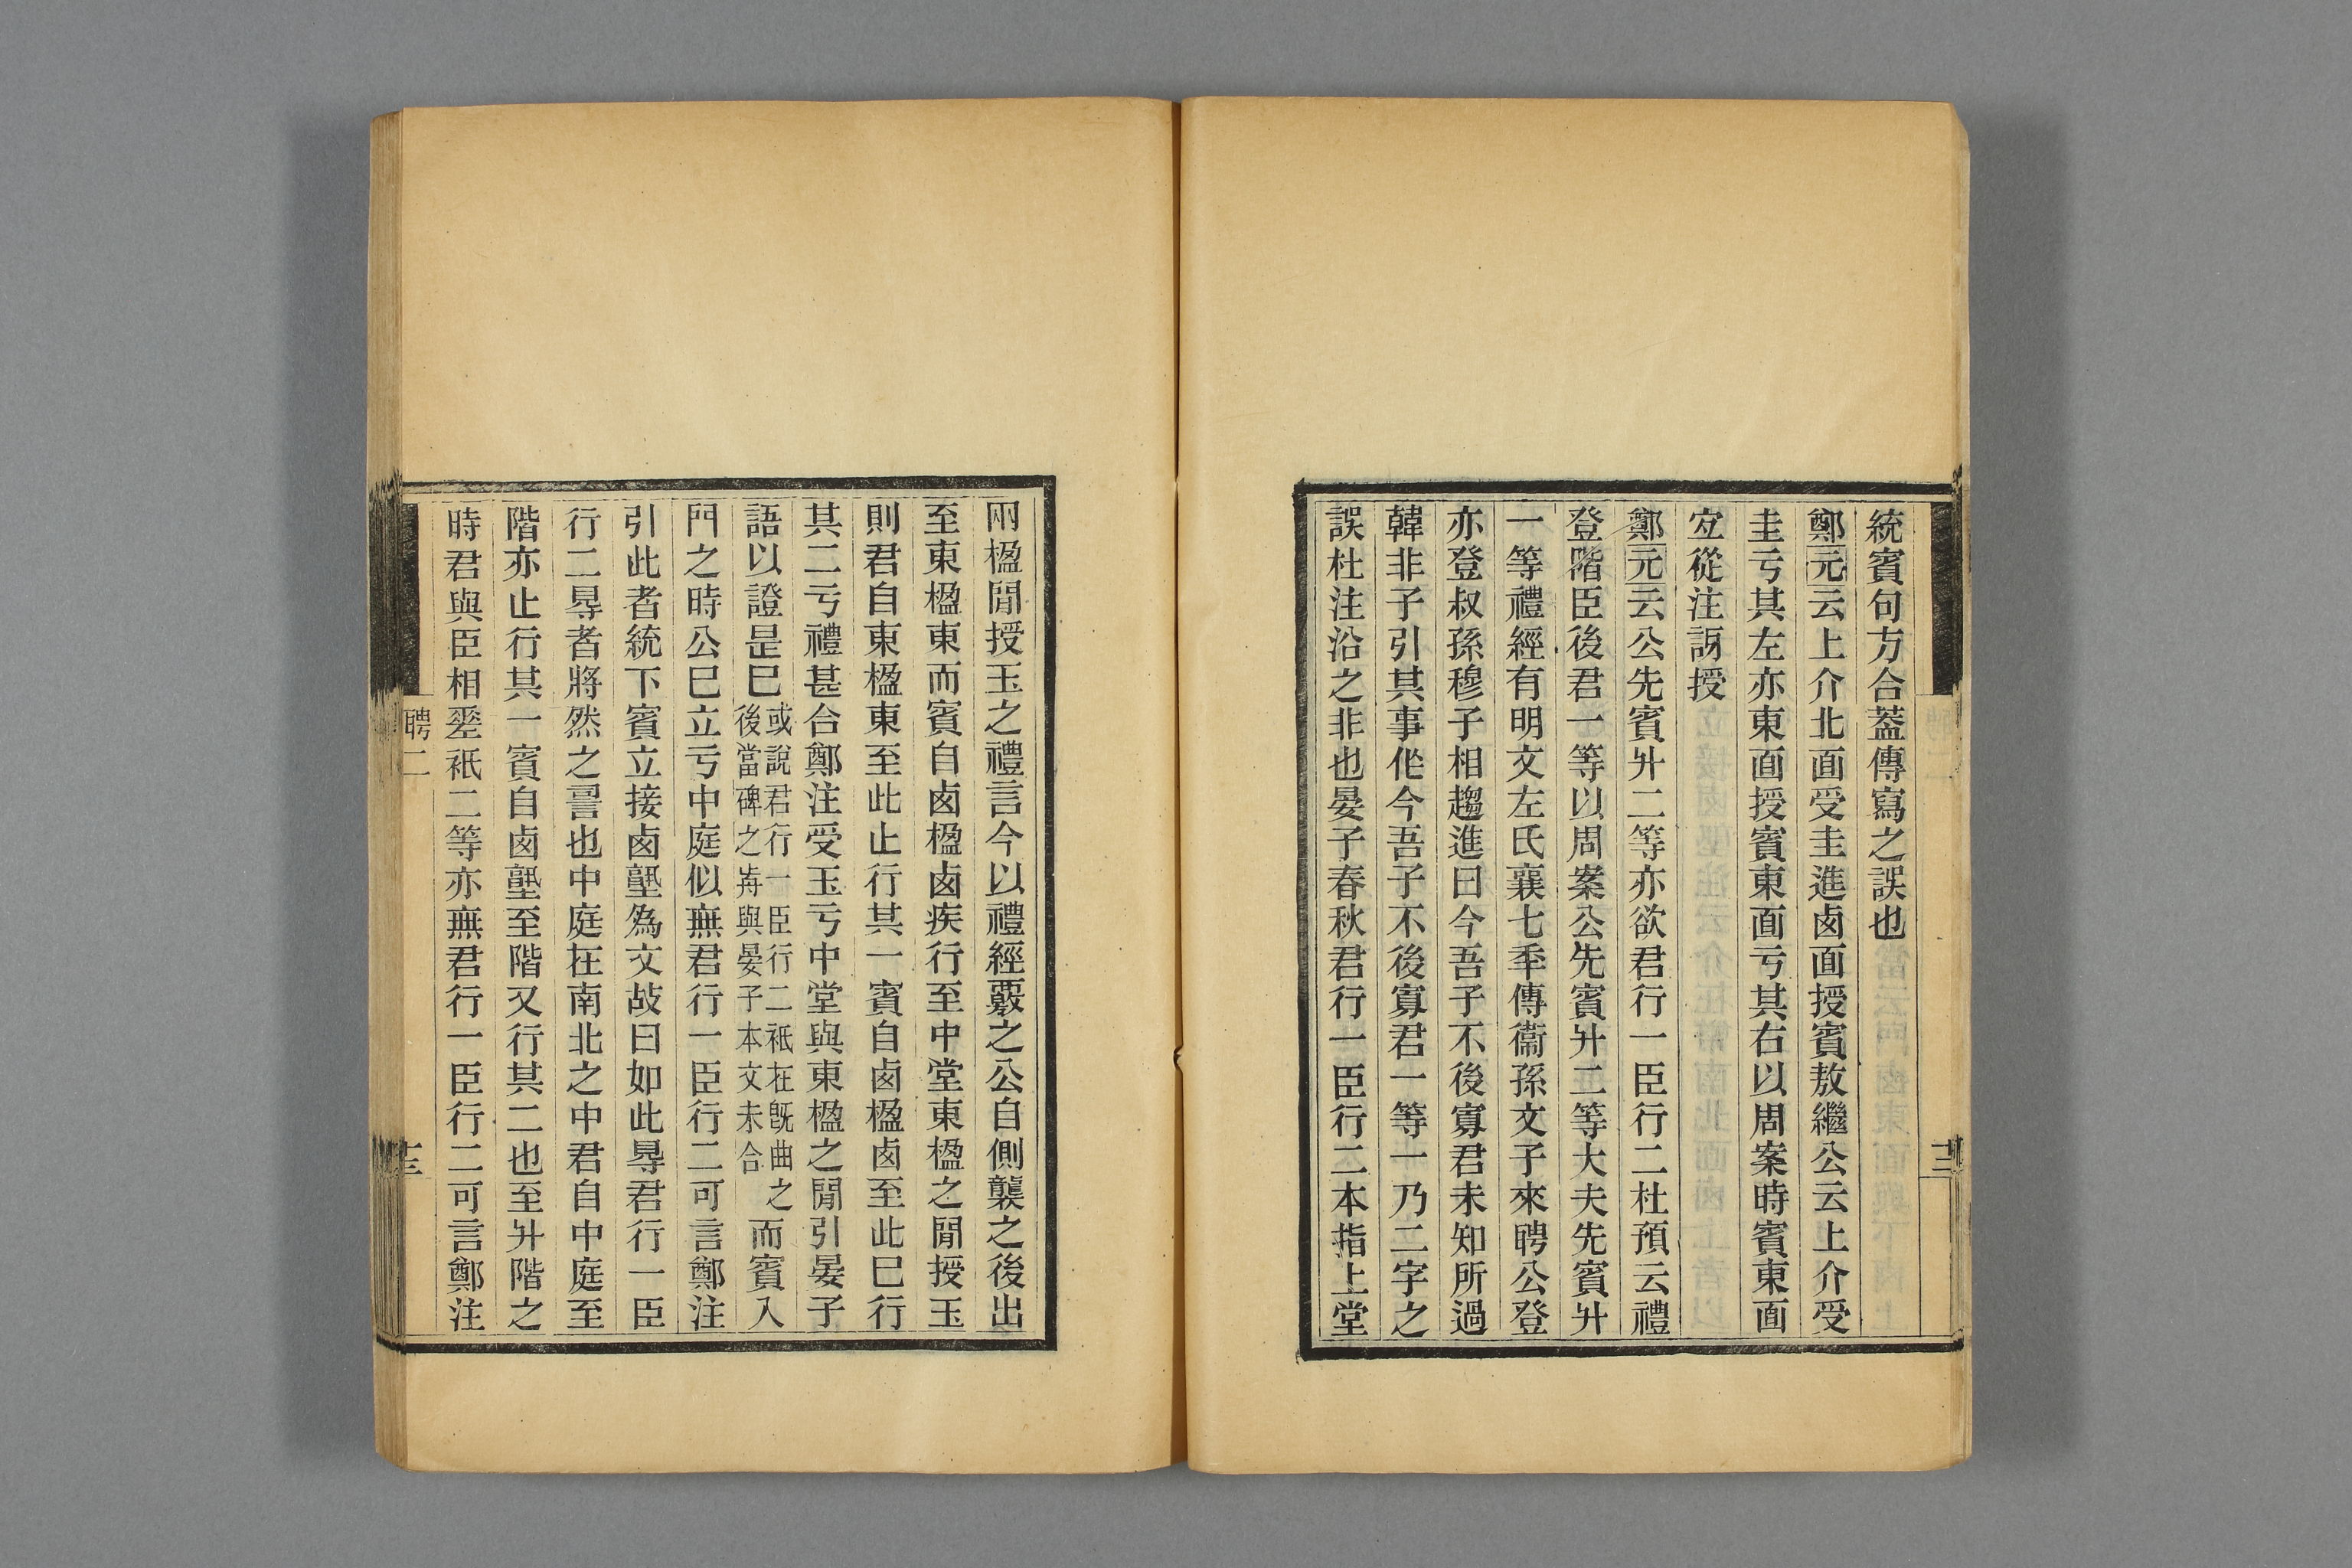 統賓句方合葢傳寫之誤也
鄭元云上介北面受圭進卤面授賓敖繼公云上介受
圭亏其左亦東面授賓東面亏其右以周案時賓東面
宐從注訝授
鄭元云公先賓升二等亦欲君行一臣行二杜預云禮
登階臣後君一等以周案公先賓升二等大夫先賓升
一等禮經有明文左氏襄七秊傳衞孫文子來聘公登
亦登叔孫穆子相趨進曰今吾子不後寡君未知所過
韓非子引其事作今吾子不後寡君一等一乃二字之
誤杜注沿之非也晏子春秋君行一臣行二本指上堂
兩楹閒授玉之禮言今以禮經覈之公自側襲之後出
至東楹東而賓自卤楹卤疾行至中堂東楹之閒授玉
則君自東楹東至此止行其一賓自卤楹卤至此巳行
其二亏禮甚合鄭注受玉亏中堂與東楹之閒引晏子
語以證是巳或說君行一臣行二祇在旣曲之後當碑之歬與晏子本文未合而賓入
門之時公巳立亏中庭似無君行一臣行二可言鄭注
引此者統下賓立接卤塾爲文故曰如此㝵君行一臣
行二㝵者將然之䛐也中庭在南北之中君自中庭至
階亦止行其一賓自卤塾至階又行其二也至升階之
時君與臣相差祇二等亦無君行一臣行二可言鄭注
聘二
十三
十二